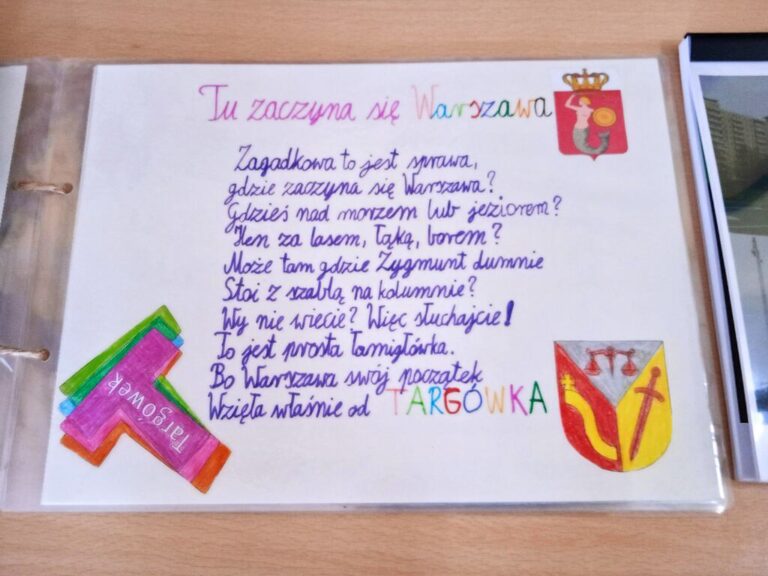 Tu zaczyna się Warszawa
Zagadkowa to jest sprawa,
gdzie zaczyna się Warszawa?
Gdzieś nad morzem lub jeziorem?
Hen za lasem, łąką, borem?
Może tam gdzie Zygmunt dumnie
Stoi z szablą na kolumnie?
Wy nie wiecie? Więc słuchajcie!
To jest prosta łamigłówka.
Bo Warszawa swój początek
Wzięła właśnie od TARGÓWKA
Targówek